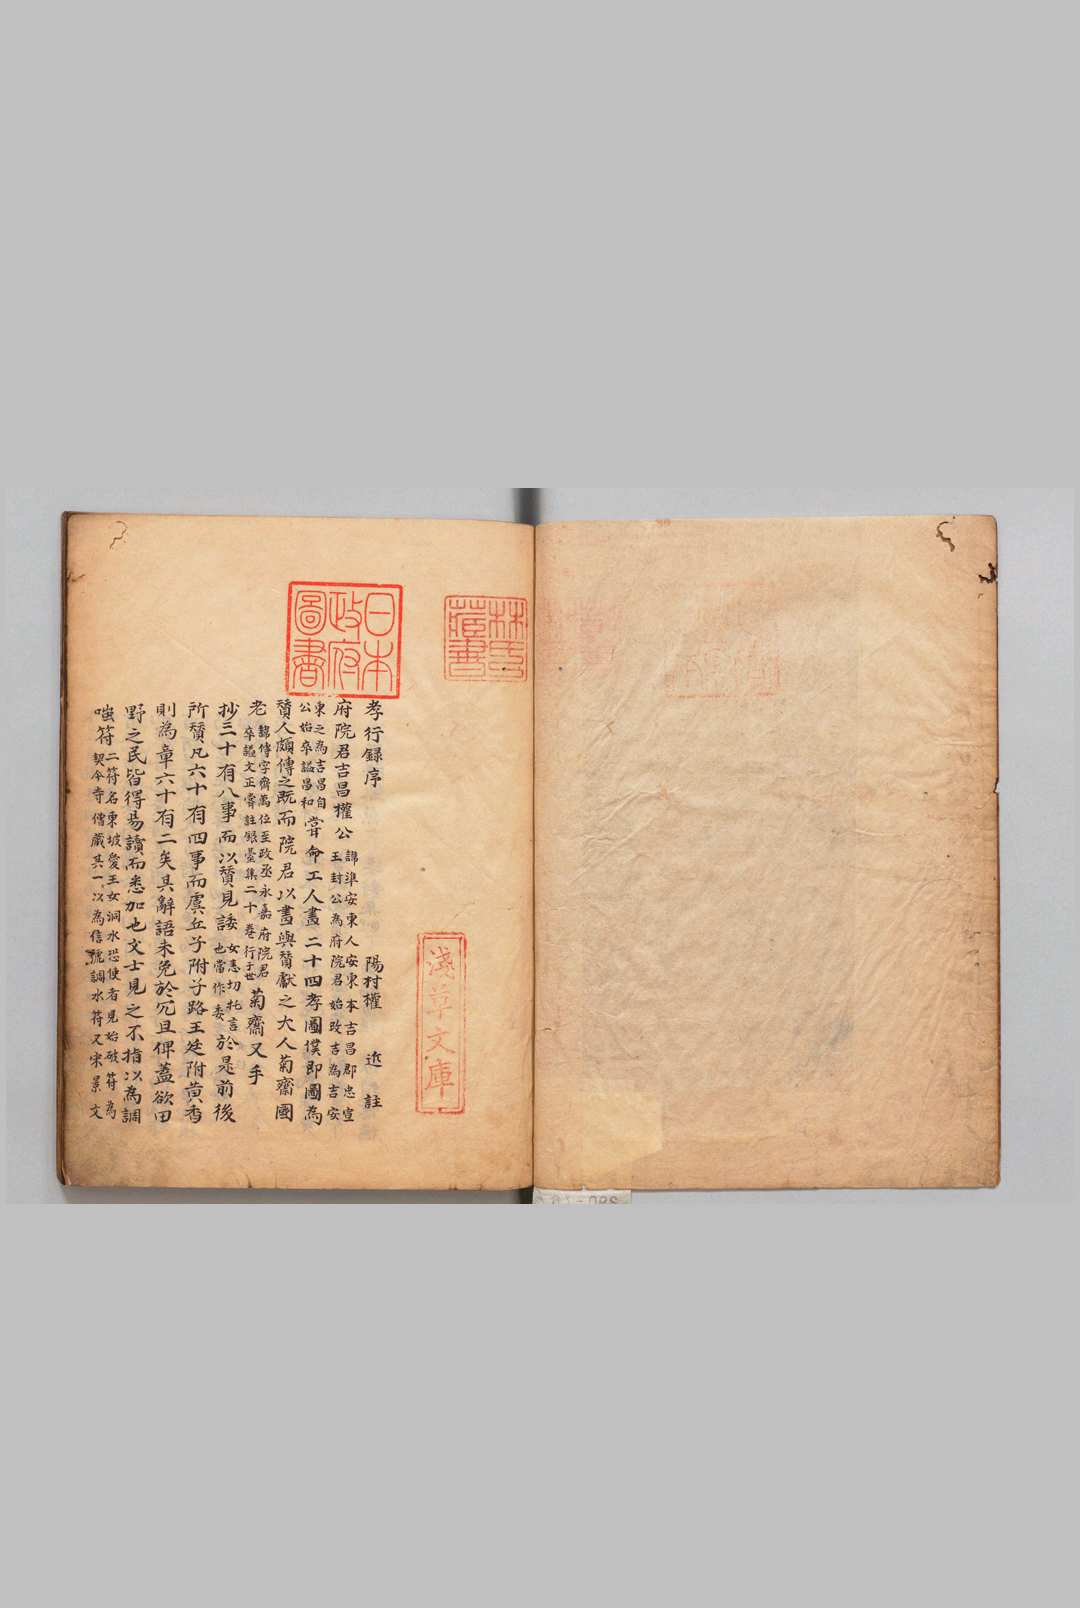 林氏
藏書
日本
政府
圖書
淺草文庫
孝行録序 陽村權 近 註
府院君吉昌權公
諱準安東人安東本吉昌郡忠宣
王封公為府院君始改吉為吉安
東之為吉昌自
公始卒謚昌和
嘗命工人畫二十四孝圖僕即圖為
賛人頗傳之既而院君以畫與賛獻之大人菊齋國
老
諱傳字齊萬位至政丞永嘉府院君
卒謚文正嘗註銀臺集二十巻行于世
菊齋又手
抄三十有八事而以賛見諉
女恚切托言
也當作委
於是前後
所賛凡六十有四事而虞丘子附子路王延附黄香
則為章六十有二矣其辭語未免於冗且俾蓋欲田
野之民皆得易讀而悉加也文士見之不指以為調
嗤符
二符名東坡愛王女洞水恐使者見始破符為
契令寺僧蔵其一以為信號調水符又宋景文